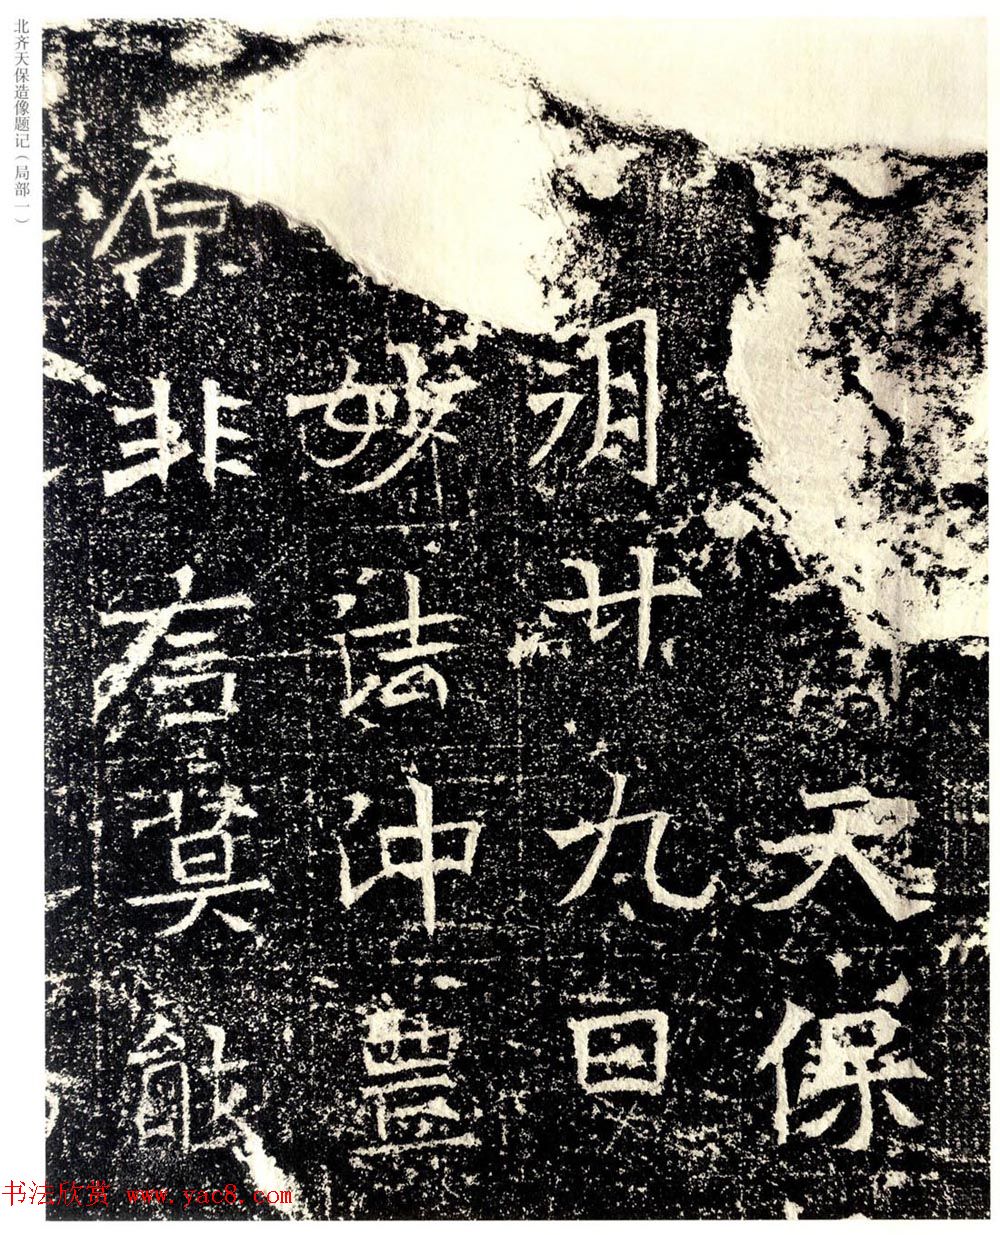 天保
月廿九日
妙法沖豊
原非唇莫能
北齐天保造像题记（局部一）
书法欣赏 www.yac8.com